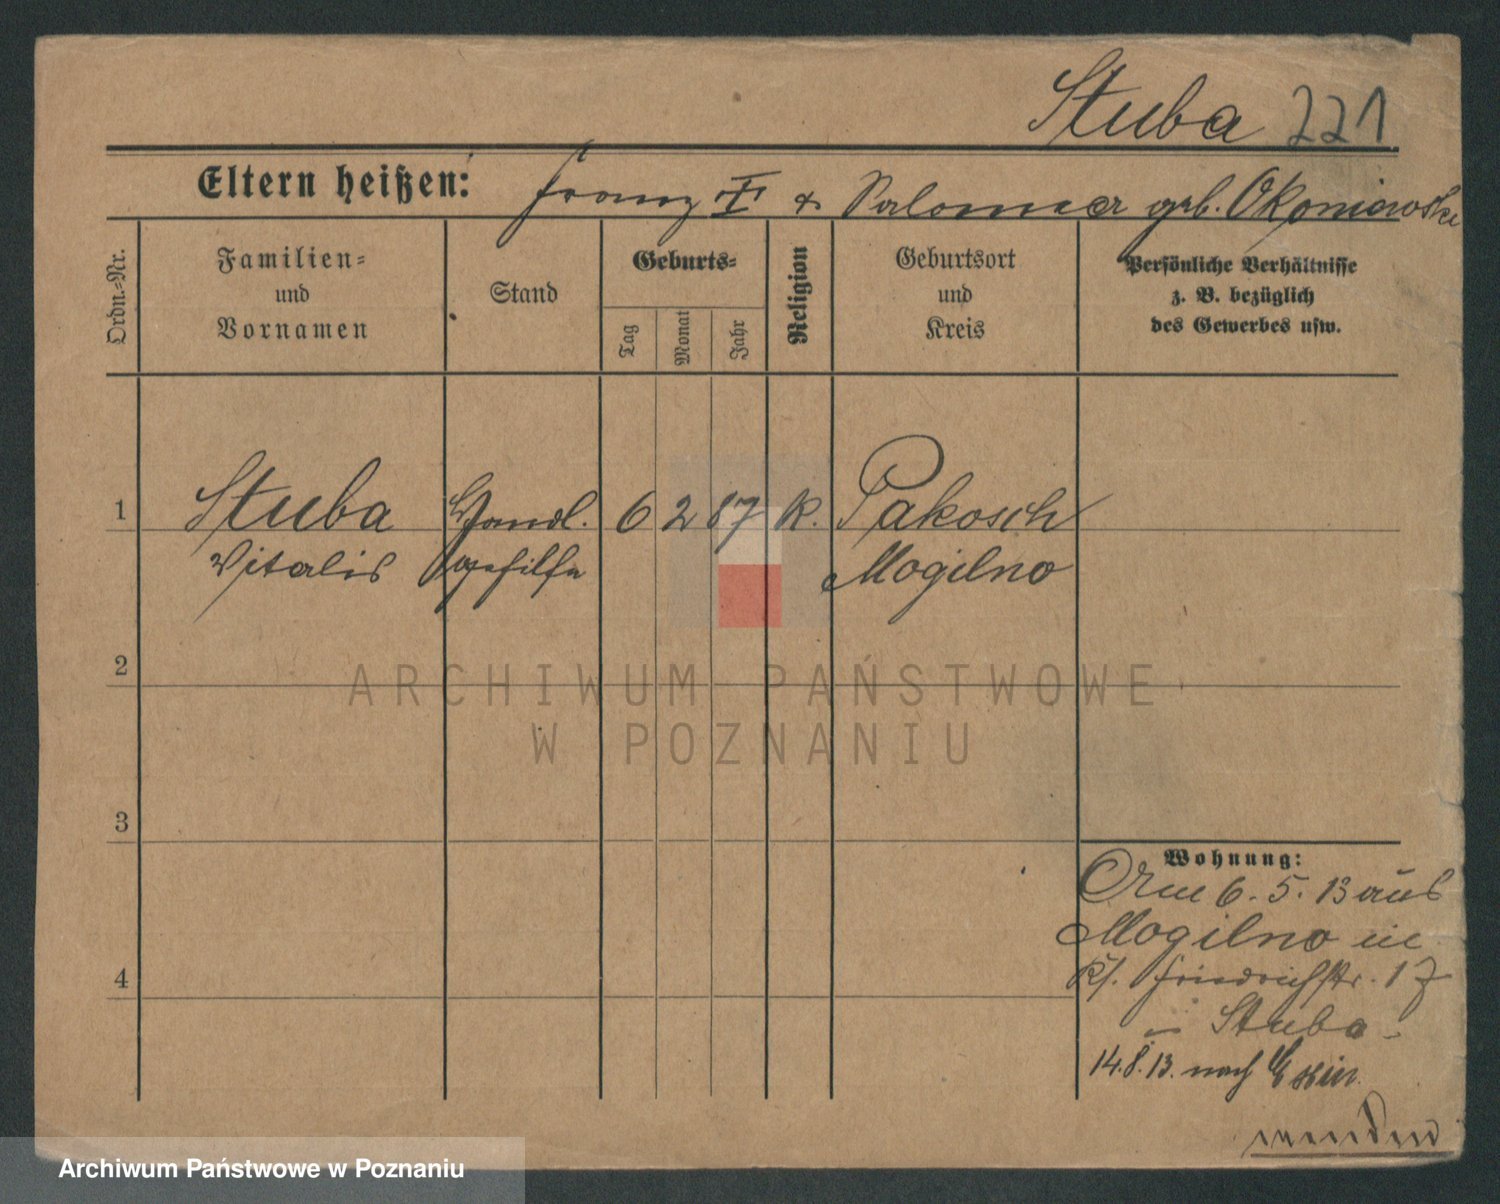 Stuba 221
Eltern heißen: Franz I & Salomea geb. Okoniewski
Ordn.-Nr.
Familien-
und
Vornamen
Stand
Geburts-
Tag
Monat
Jahr
Religion
Geburtsort
und
Kreis
Persönliche Verhältnisse
z. B. bezüglich
des Gewerbes usw.
1 Stuba Handl. 6 2 87 k. Pakosch
Vitalis gehilfe Mogilno
2
3
4
Wohnung:
6.5.13 aus
Mogilno in
Friedrichstr. 17
Stuba
14.8.13. nach Exin
wenden
ARCHIWUM PAŃSTWOWE
W POZNANIU
Archiwum Państwowe w Poznaniu